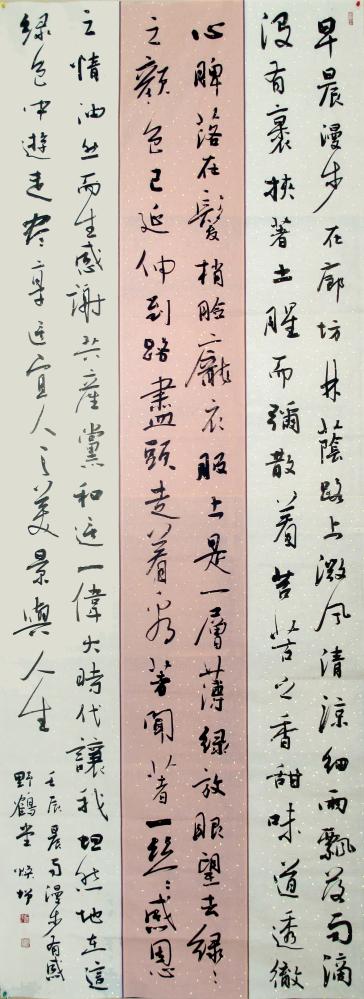 早晨漫步在廊坊林蔭路上微风清涼细雨飘落雨滴
沒有裹挾著土腥而彌散着苦苦之香甜味道透徹
心脾落在髮梢臉龐衣服上是一層薄绿放眼望去绿〻
之顏色已延伸到路盡頭走着看著聞著一丝〻感恩
之情油然而生感謝共產黨和這一偉大時代讓我坦然地在這
绿色中遊走尽享這宜人之美景與人生
壬辰晨雨漫步有感
野鶴堂